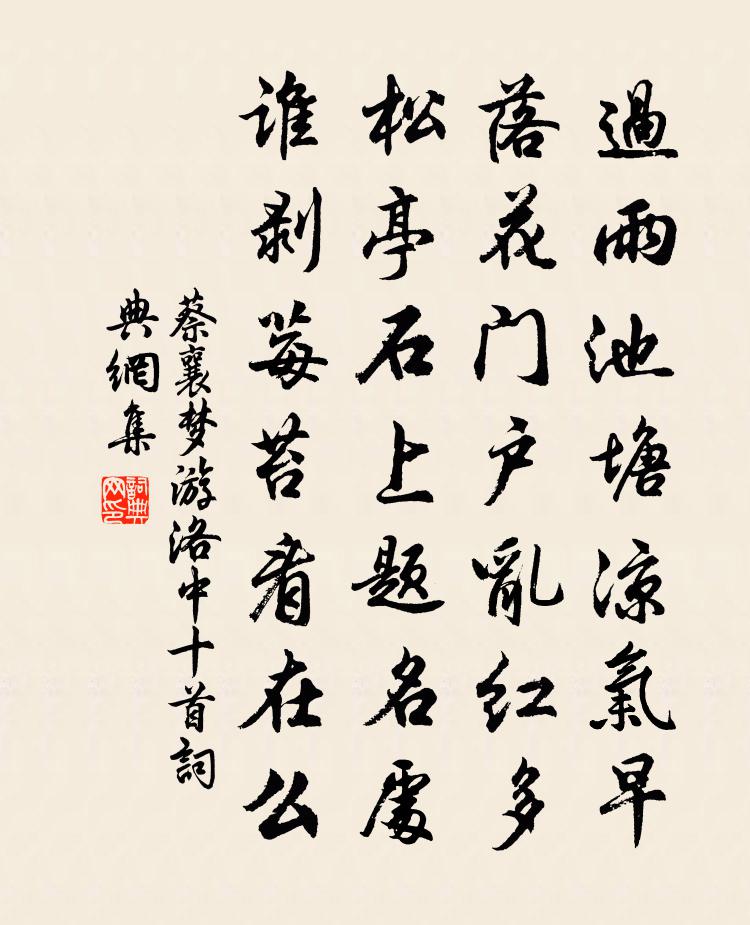 過雨池塘凉氣早
落花门户亂红多
松亭石上题名處
谁剥莓苔看在么
蔡襄梦游洛中十首詞
典網集
詞典网印